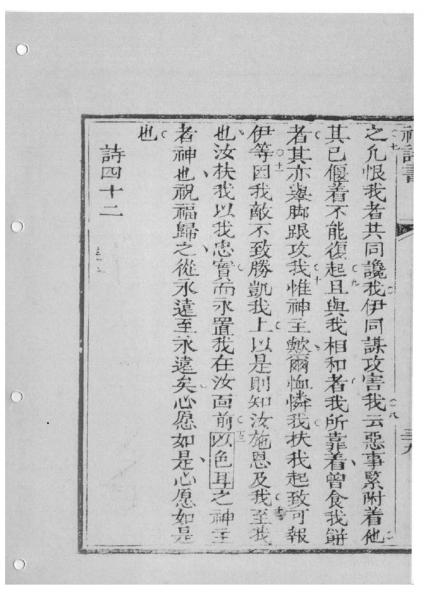 神詩書
三九
之凢恨我者共同讒我伊同謀攻害我云惡事緊附着他
其已偃着不能復起且與我相和者我所靠着曾食我餅
者其亦舉脚跟攻我惟神主歟爾恤憐我扶我起致可報
伊等因我敵不致勝凱我上以是則知汝施恩及我至我
也汝扶我以我忠實而永置我在汝面前以色耳之神主
者神也祝福歸之從永遠至永遠矣心愿如是心愿如是
也
詩四十二